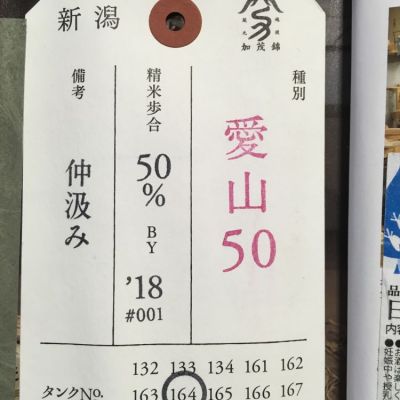 新潟
加茂錦
種別
愛山50
精米歩合
50%
BY
'18
#001
備考
仲汲み
132 133 134 161 162
タンクNo.
163 164 165 166 167
品
日
内容
●お酒は楽しく
●妊娠中や授乳